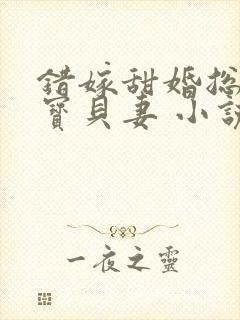 錯嫁甜婚總
寶貝妻 小說
一夜之靈